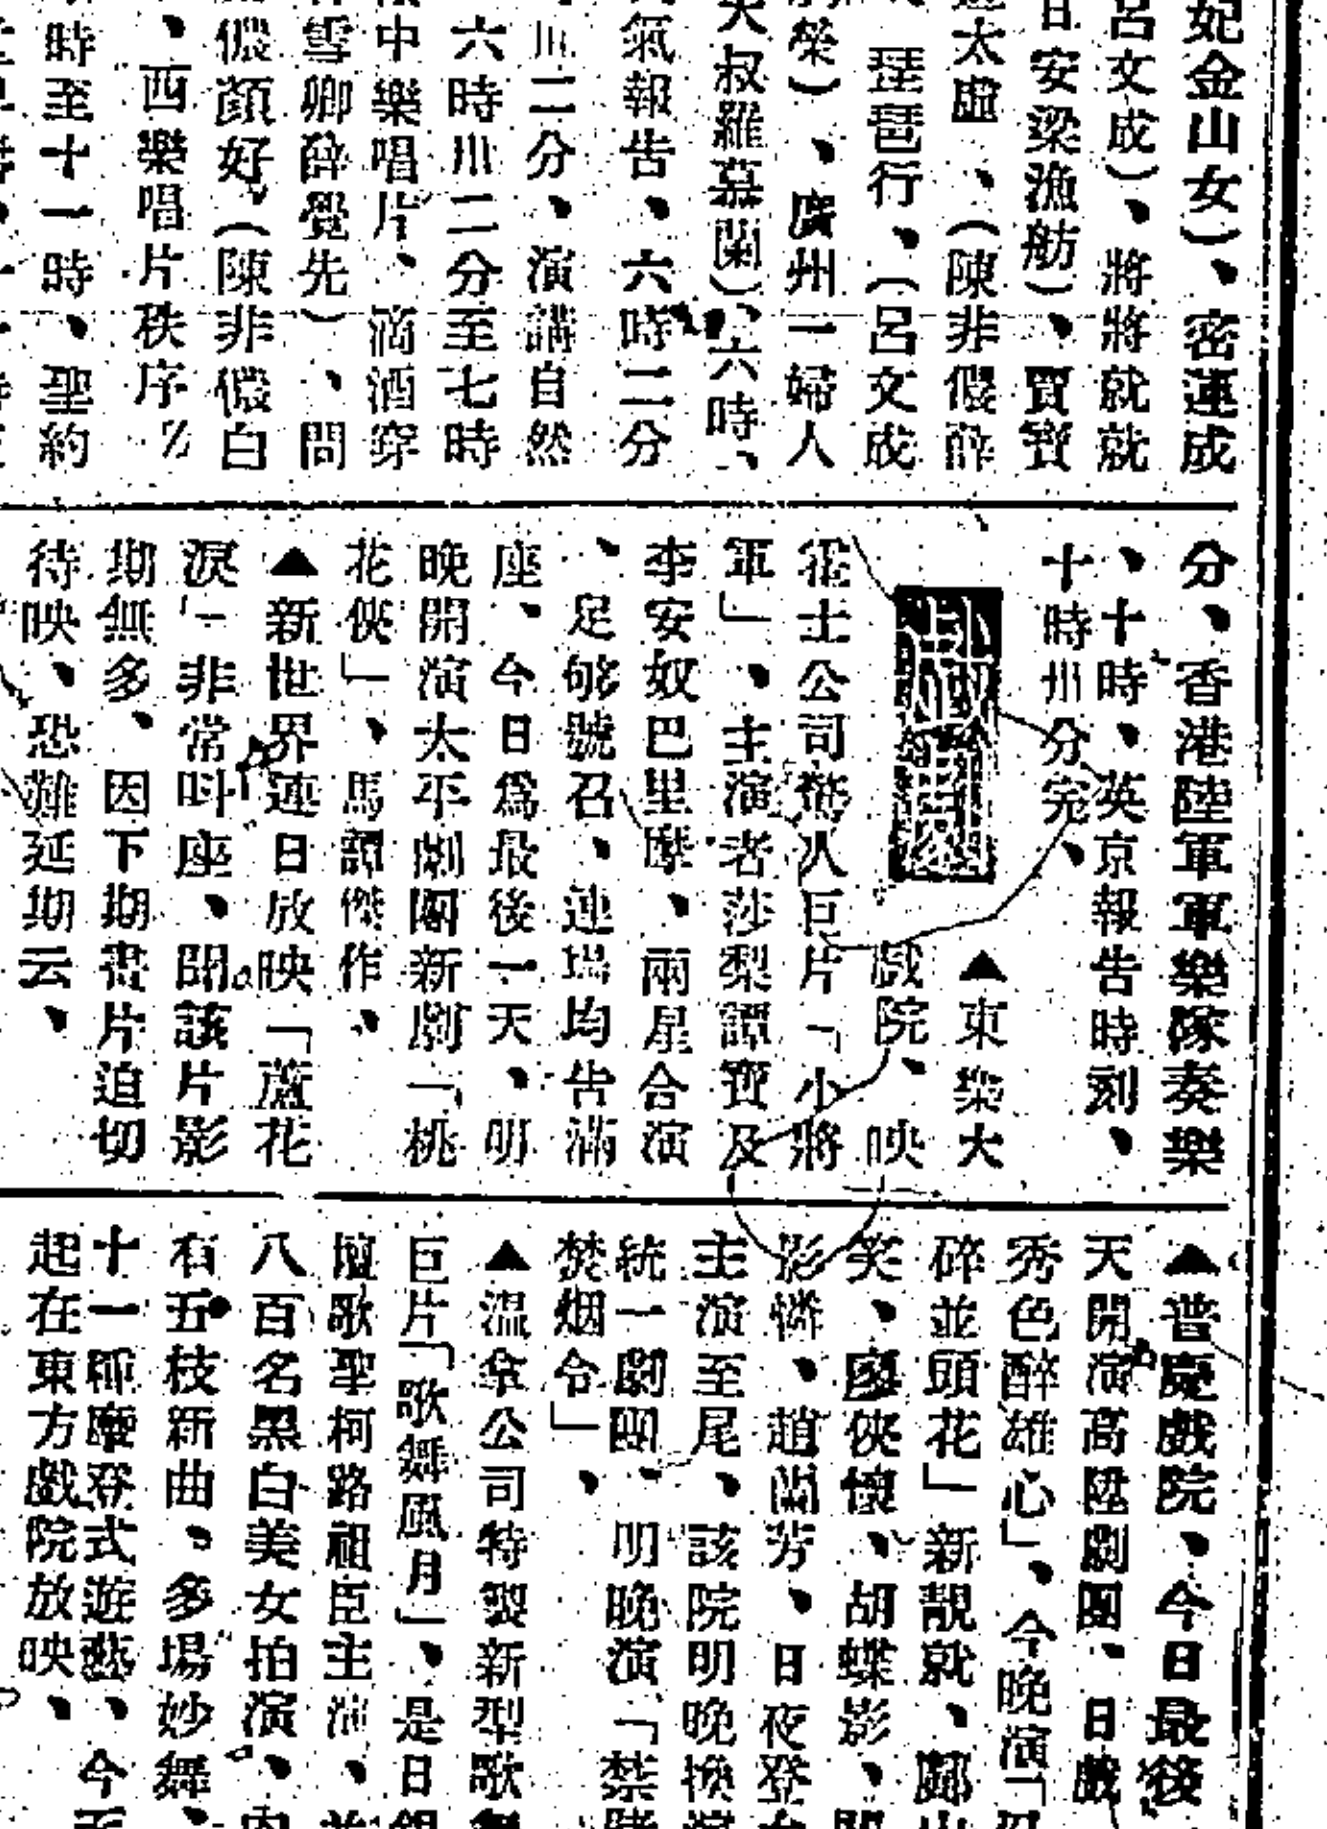 妃金山女)、密蓮成
呂文成)、將將就就
日安梁漁舫)、賈寶
太虛、(陳非儂薛
琵琶行、(呂文成
榮)、廣州一婦人
大叔羅慕蘭)、六時、
氣報告、六時二分
川二分、演講自然
六時川二分至七時
中樂唱片、滴酒穿
雪卿薛覺先)、問
儂顏好、(陳非儂白
、西樂唱片秩序
時至十一時、聖約
分、香港陸軍軍樂隊奏樂
、十時、英京報告時刻、
十時卅分完、
▲東樂大
戲院、映
霍士公司驚人巨片「小將
軍」、主演者莎梨譚寶及
李安奴巴里摩、兩星合演
、足够號召、連塲均告滿
座、今日爲最後一天、明
晚開演太平劇團新劇「桃
花俠」、馬譚傑作、
▲新世界連日放映「蘆花
淚」非常呌座、聞該片影
期無多、因下期畫片迫切
待映、恐難延期云、
▲普慶戲院、今日最後
天開演高陞劇團、日戲
秀色醉雄心」、今晚演「
碎並頭花」新靚就、鄺山
笑、廖俠懷、胡蝶影、
影憐、趙蘭芳、日夜登台
主演至尾、該院明晚換演
統一劇團、明晚演「禁賭
焚烟令」、
▲溫拿公司特製新型歌舞
巨片「歌舞風月」、是日銀
壇歌聖柯路祖臣主演、並
八百名黑白美女拍演、內
有五枝新曲、多場妙舞、
十一種摩登式遊藝、今天
起在東方戲院放映、